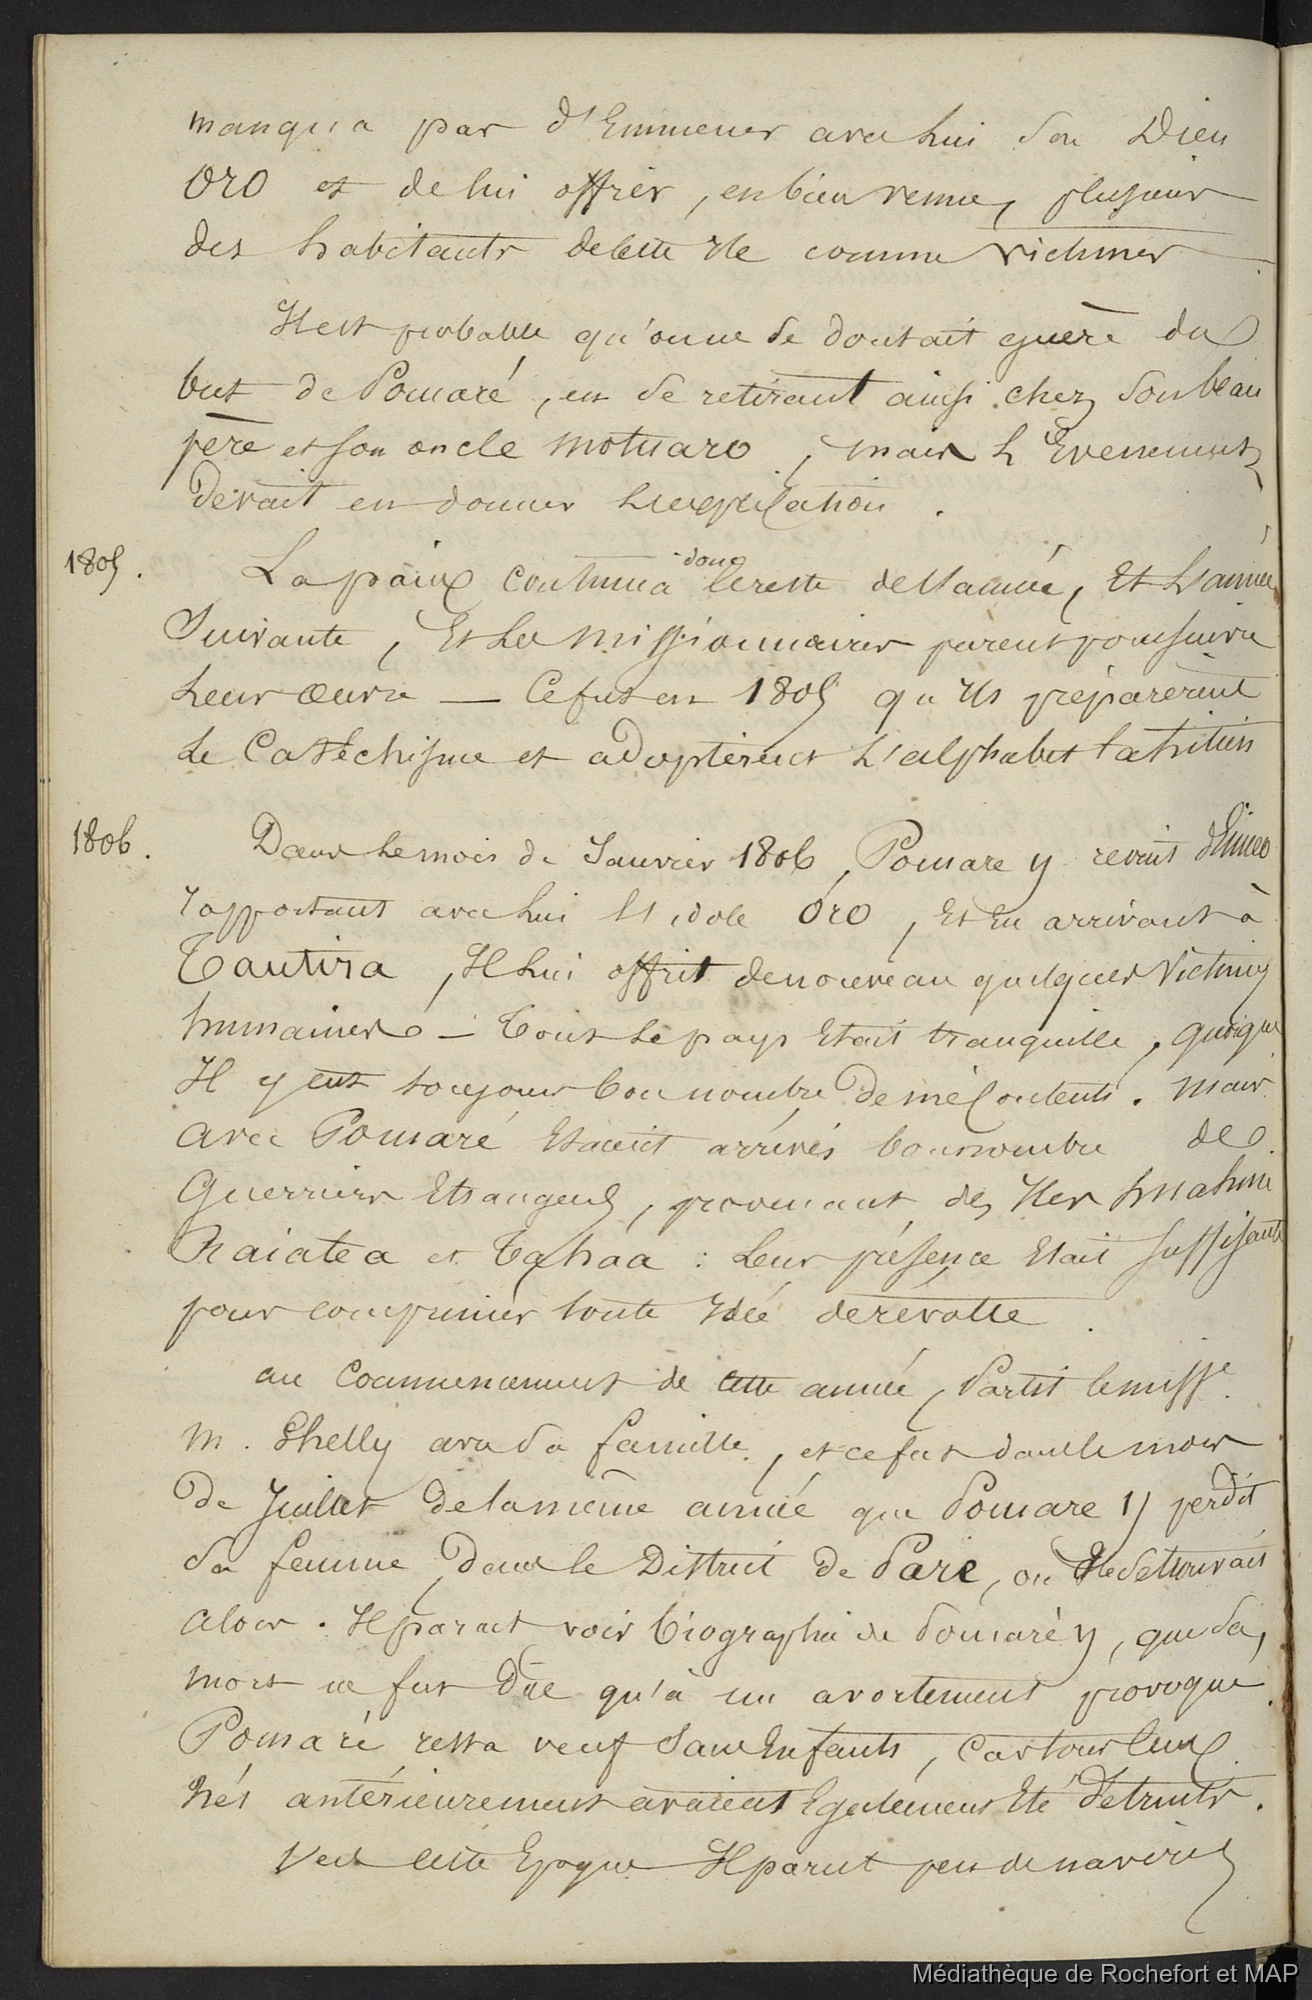 manqua pas d'Emmener avec lui son Dieu
Oro et de lui offrir, en bienvenue, plusieurs
des habitants de cette Ile comme victimes
Il est probable qu'on ne se doutait guère du
but de Pomaré, en se retirant ainsi chez son beau
père et son oncle Motuaro, mais L'Evenement
Devait en donner L'explication.
1805.
La paix continua donc le reste de L'année, Et L'année
Suivante, Et Les Missionnaires purent poursuivre
Leur œuvre — Ce fut en 1805 qu'Ils préparèrent
Le Catéchisme et adoptèrent L'alphabet tahitien
1806.
Dans Le mois de Janvier 1806, Pomare y revint d'Eimeo
rapportant avec lui L'idole Oro, Et En arrivant à
Tautira, Il lui offrit de nouveau quelques Victimes
humaines — Tout Le pays Etait tranquille, quoique
Il y eut toujours bon nombre De mécontents. Mais
avec Pomaré Etaient arrivés bon nombre de
Guerriers Etrangers, provenant des Iles huahine
Raiatea et Tahaa : Leur présence Etait suffisante
pour comprimer toute Idée de révolte.
au Commencement de cette année, Partit le miss.
M. Shelly avec sa famille, et ce fut dans le mois
De Juillet De la même année que Pomare II perdit
sa femme, Dans le District de Pare, où Elle se trouvait
alors. Il parait voir biographie de Pomaré II, que sa
mort ne fut Dûe qu'à un avortement provoqué
Pomaré resta veuf sans Enfants, Car tous ceux
nés antérieurement avaient Egalement Eté Détruits.
Vers cette Epoque Il parut peu de navires
Médiathèque de Rochefort et MAP